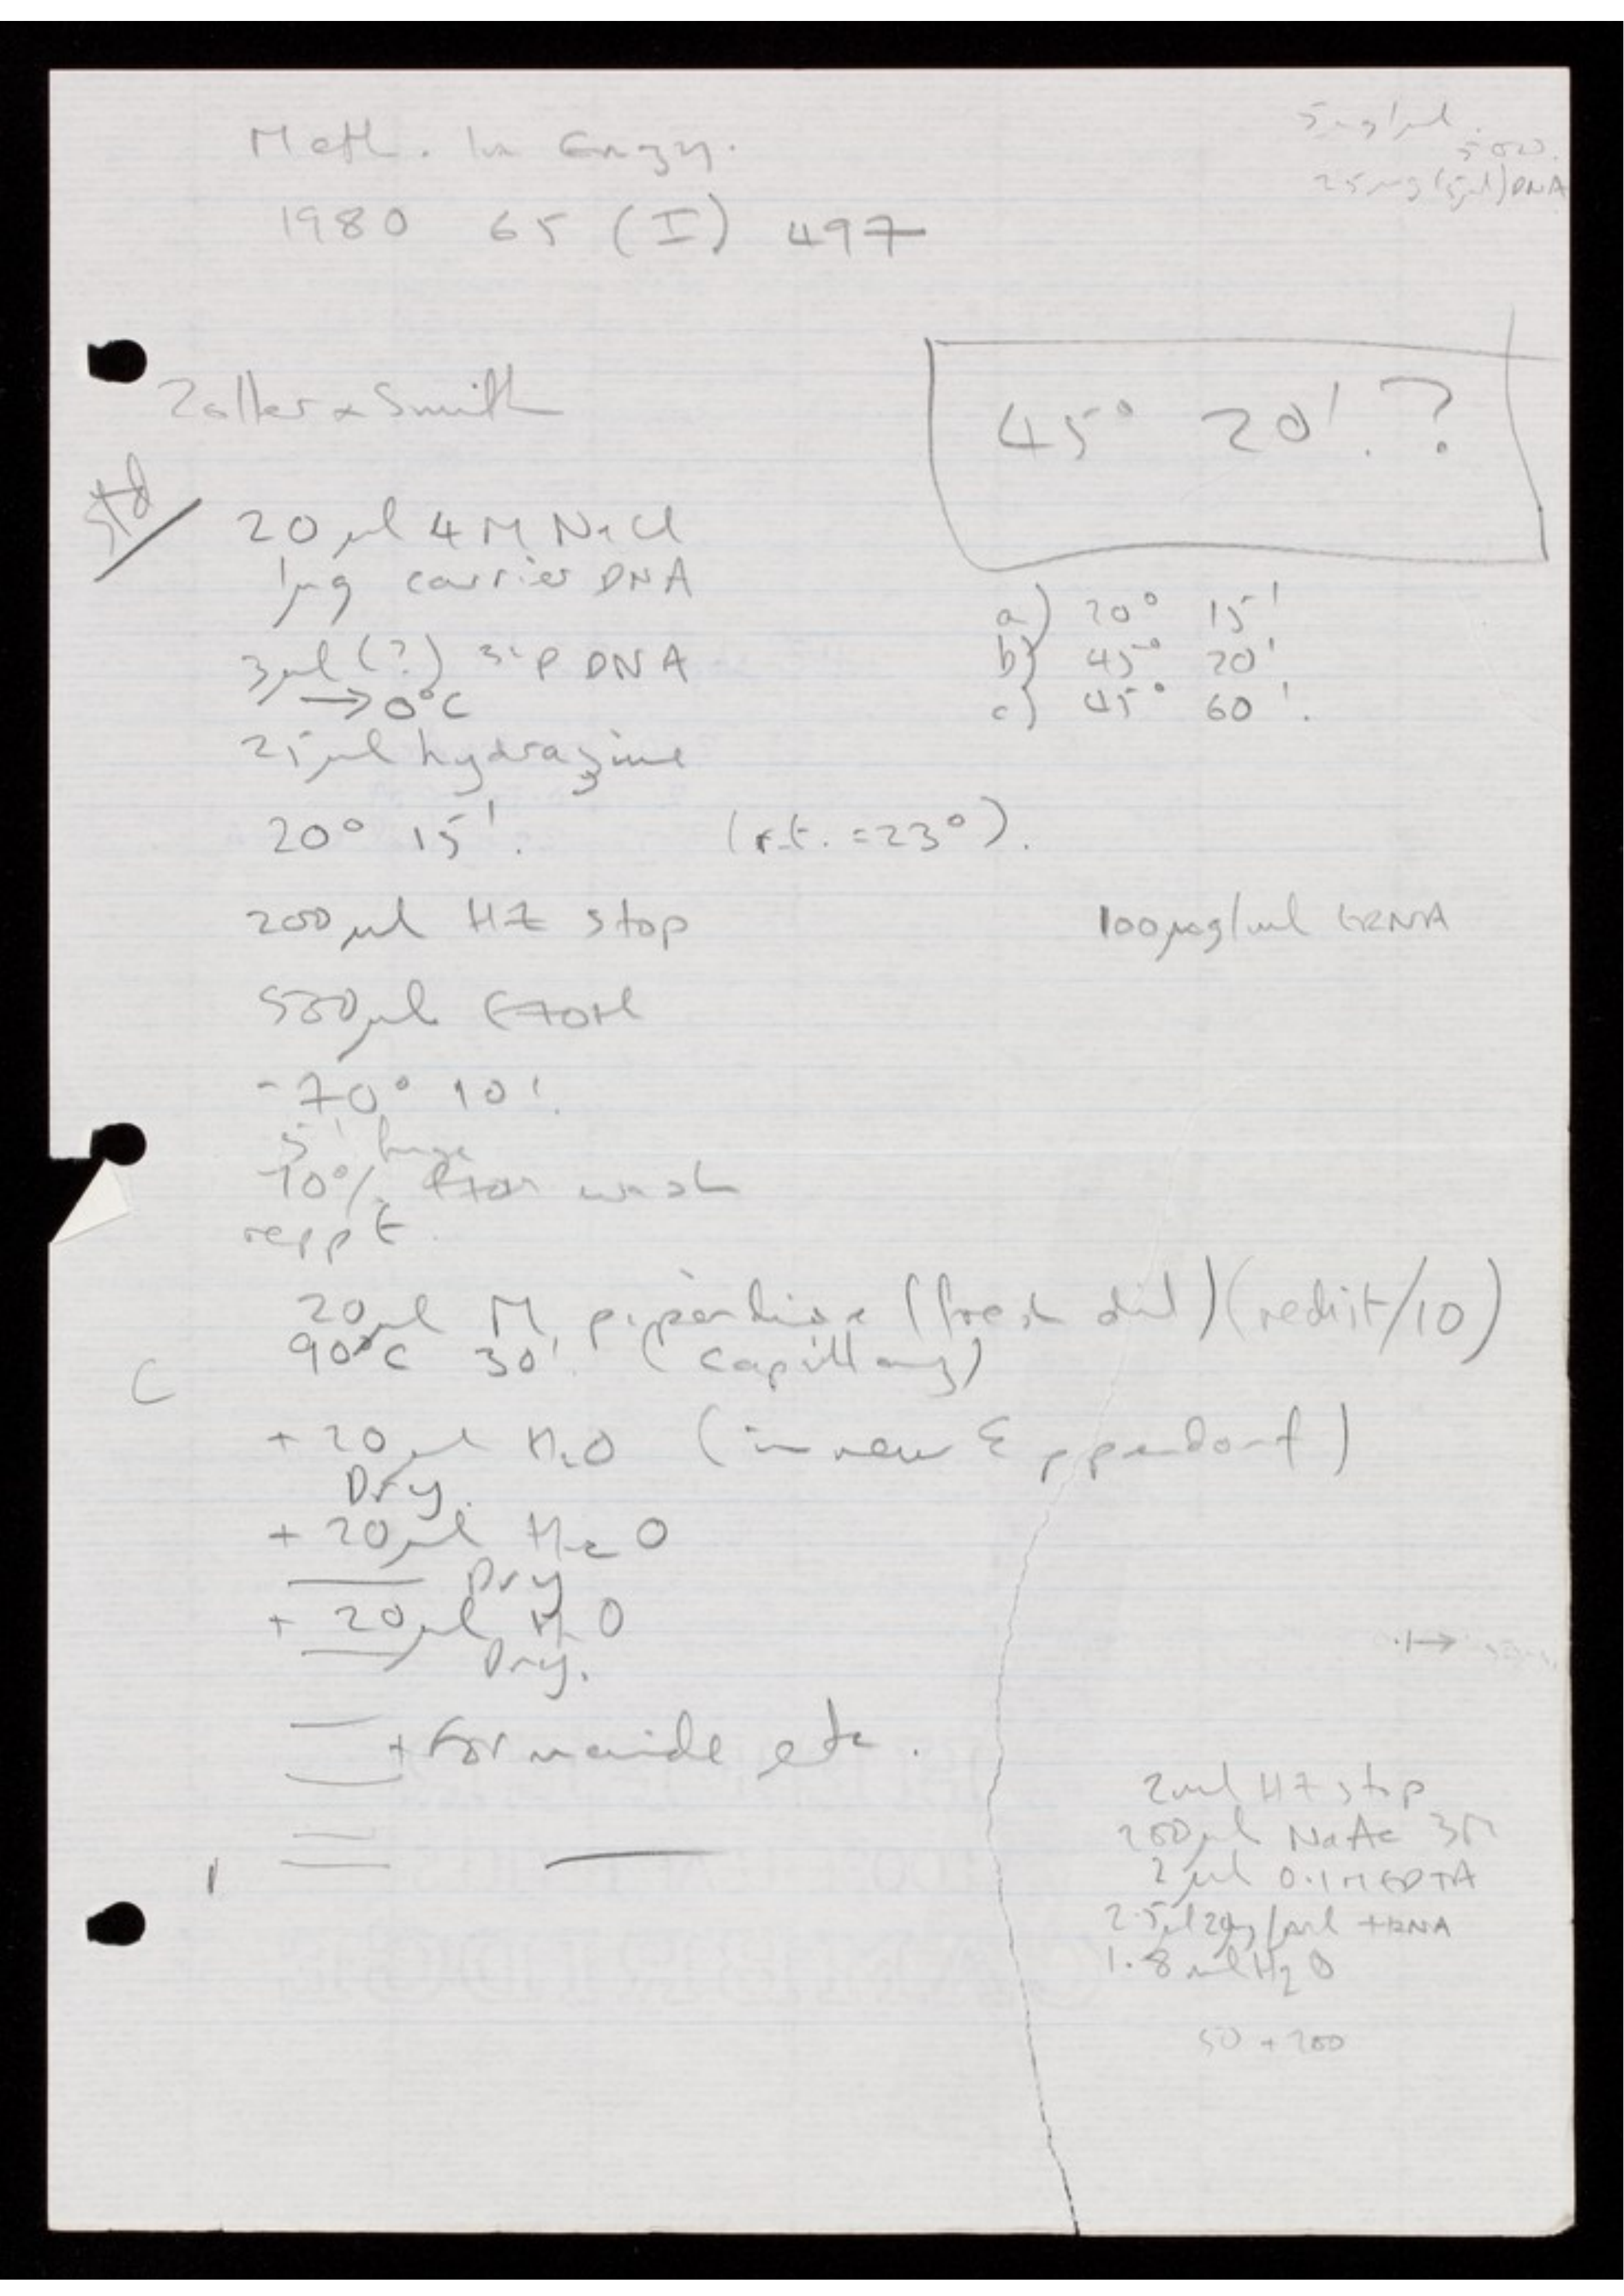 Meth. in Enzy.
1980 65 (I) 497
5µg/µl
25µg (5µl) DNA
Zoller & Smith
45° 20'. ?
std
20µl 4M NaCl
1µg carrier DNA
3µl (?) 32P DNA
→ 0°C
25µl hydrazine
20° 15'. (r.t. = 23°).
a) 20° 15'
b) 45° 20'
c) 45° 60'.
200µl HZ stop
100µg/ml tRNA
500µl EtOH
-70° 10'.
5'
70% EtOH wash
reppt.
20µl M piperidine (fresh dil) (redist/10)
90°C 30'. (capillary)
C
+ 20µl H2O (in new Eppendorf)
Dry.
+ 20µl H2O
Dry
+ 20µl H2O
Dry.
+ Formamide etc.
2ml HZ stop
200µl NaAc 3M
2µl 0.1M EDTA
2.5µl 20mg/ml tRNA
1.8ml H2O
50 + 200